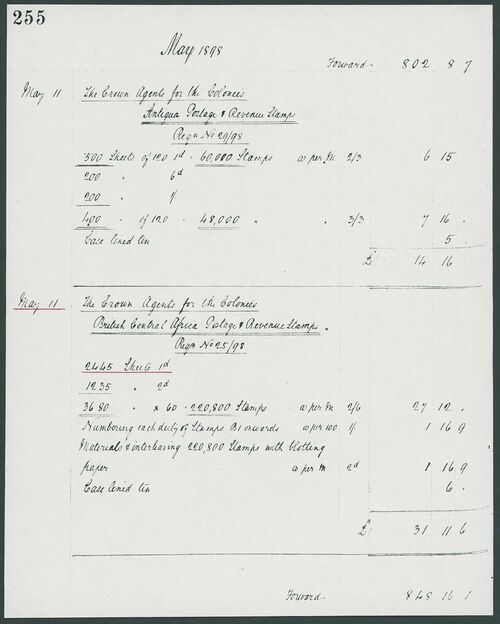 255
May 1898
Forward - 802 8 7
May 11 The Crown Agents for the Colonies
Antigua Postage & Revenue Stamps
Reqn No 29/98
500 Sheets of 120 1d = 60,000 Stamps @ per M 2/3 6 15
200 " 6d
200 " 1/
400 " of 120 - 48,000 " " 3/3 7 16 -
Case lined tin 5 -
£ 14 16 -
May 11 The Crown Agents for the Colonies
British Central Africa Postage & Revenue Stamps
Reqn No 25/98
2445 Sheets 1d
1235 " 2d
3680 " x 60 - 220,800 Stamps @ per M 2/6 27 12 -
Numbering each duty of Stamps onwards @ per 100 1/ 1 16 9
Materials & interleaving 220,800 Stamps with blotting
paper @ per M 2d 1 16 9
Case lined tin 6 -
£ 31 11 6
Forward - 848 16 1